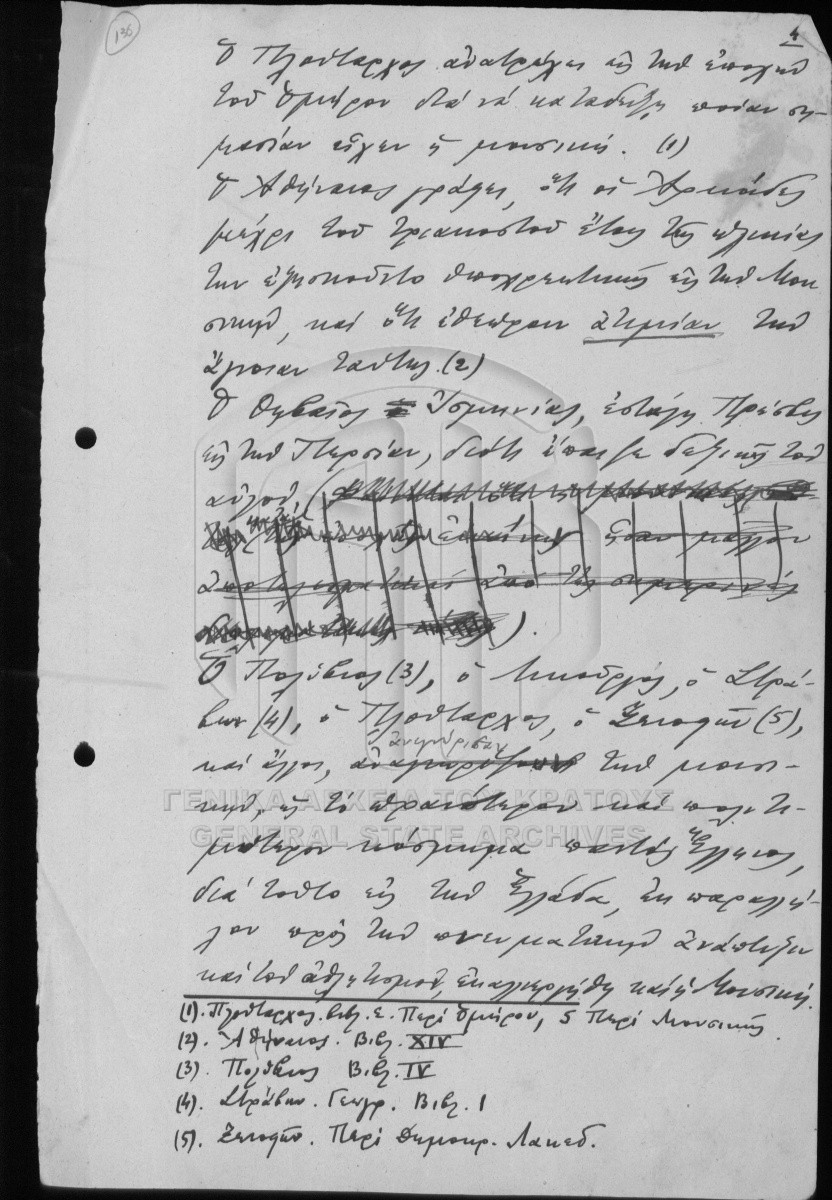 136
4
Ὁ Πλούταρχος ἀνατρέχει εἰς τὴν ἐποχὴν
τοῦ Ὁμήρου διὰ νὰ καταδείξῃ ποίαν ση-
μασίαν εἶχεν ἡ μουσική. (1)
Ὁ Ἀθήναιος γράφει, ὅτι οἱ Ἀρκάδες
μέχρι τοῦ τριακοστοῦ ἔτους τῆς ἡλικίας
των ἐξησκοῦντο ὑποχρεωτικῶς εἰς τὴν Μου
σικήν, καὶ ὅτι ἐθεώρουν ἀτιμίαν τὴν
ἄγνοιαν ταύτης. (2)
Ὁ Θηβαῖος Ἰσμηνίας, ἐστάλη Πρέσβυς
εἰς τὴν Περσίαν, διότι ἔπαιζε δεξιῶς τὸν
αὐλόν, (
ἐκείνην ἦσαν μᾶλλον
ἀπὸ τῆς σημερινῆς
).
Ὁ Πολύβιος (3), ὁ Λυκοῦργος, ὁ Στρά-
βων (4), ὁ Πλούταρχος, ὁ Ξενοφῶν (5),
ἀνεγνώρισαν
καὶ ἄλλοι, τὴν μουσι-
κήν, ὡς τὸ ὡραιότερον καὶ πολυτι-
μότερον κόσμημα παντὸς Ἕλληνος,
διὰ τοῦτο εἰς τὴν Ἑλλάδα, ἐκ παραλλή-
λου πρὸς τὴν πνευματικὴν ἀνάπτυξιν
καὶ τὸν ἀθλητισμόν, ἐκαλλιεργήθη καὶ ἡ Μουσική.
(1). Πλούταρχος. Βιβ. Ε. Περὶ Ὁμήρου, 5 Περὶ Μουσικῆς.
(2). Ἀθήναιος. Βιβλ. XIV
(3). Πολύβιος Βιβλ. IV
(4). Στράβων. Γεωγρ. Βιβλ. 1
(5). Ξενοφῶν. Περὶ Δημοκρ. Λακεδ.
ΓΕΝΙΚΑ ΑΡΧΕΙΑ ΤΟΥ ΚΡΑΤΟΥΣ
GENERAL STATE ARCHIVES